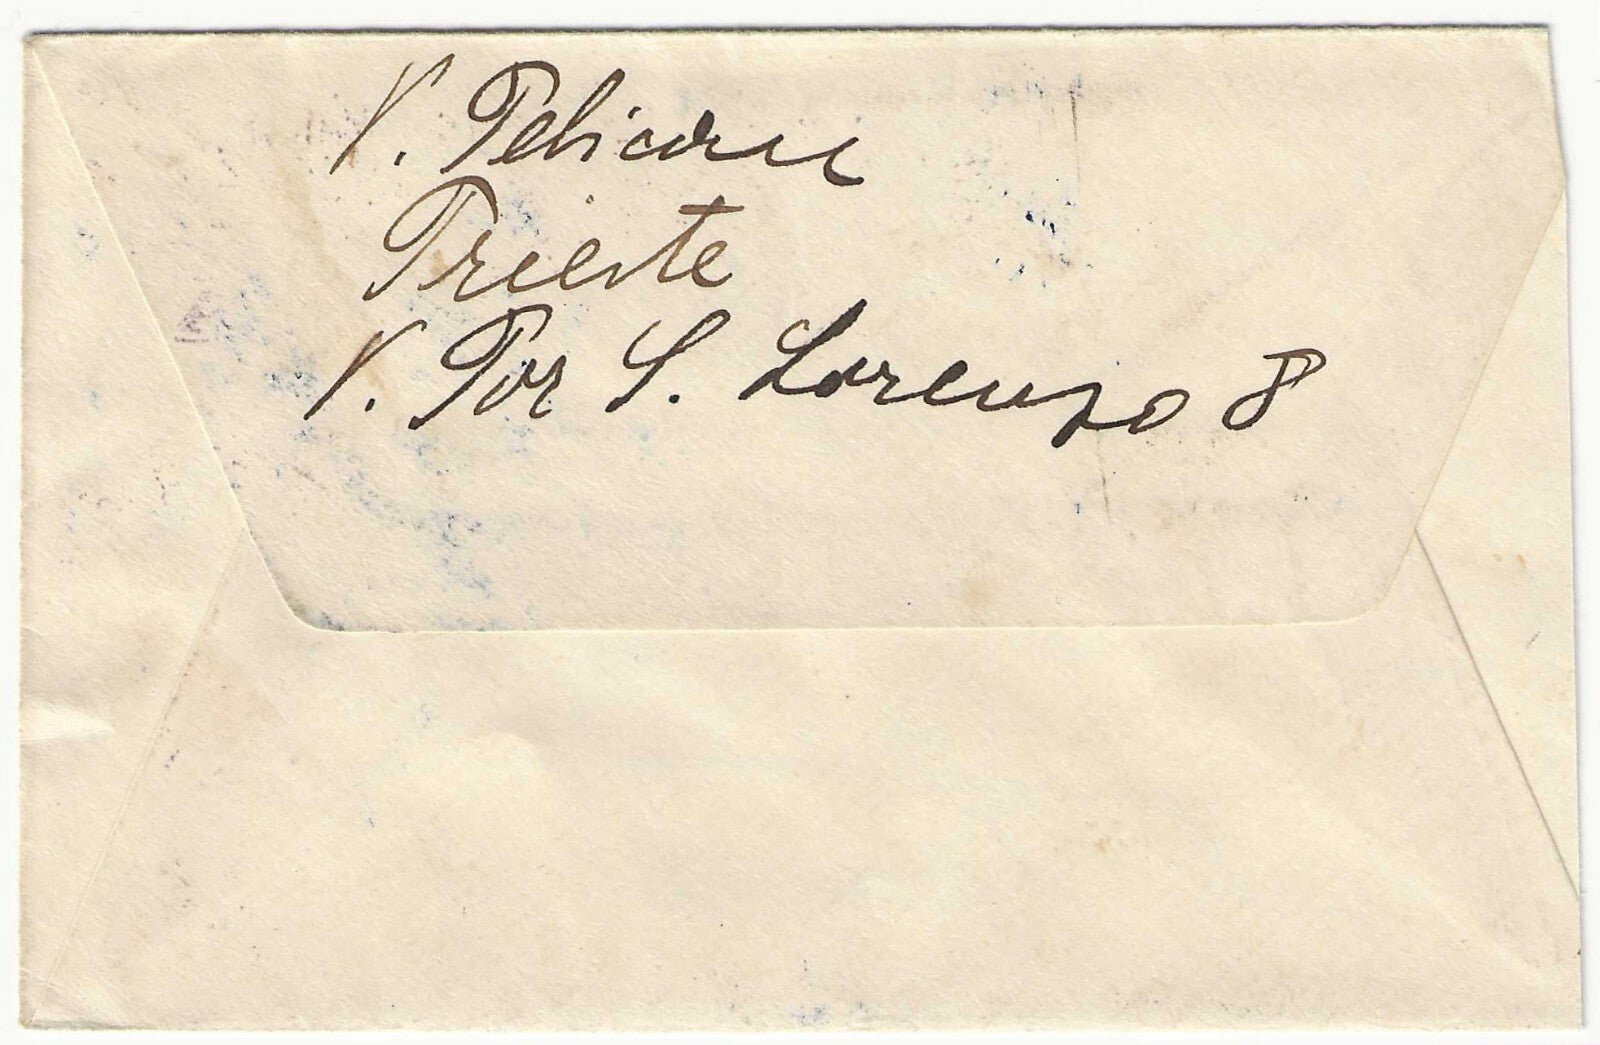 V. Pelican
Trieste
V. Tor S. Lorenzo 8